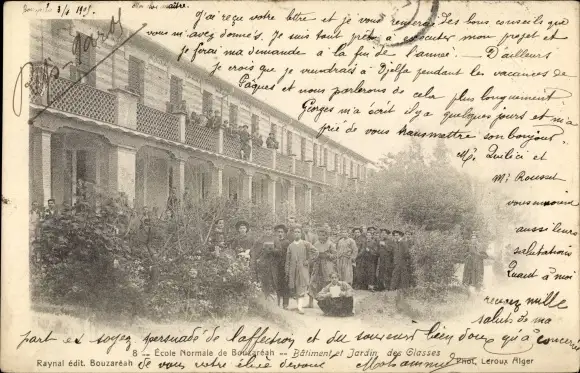 Bouzaréa 3/4 1905. Mon cher maître.
J'ai reçu votre lettre et je vous remercie des bons conseils que
vous m'avez donnés. Je suis tout prêt à exécuter mon projet et
je ferai ma demande à la fin de l'année. — D'ailleurs
je crois que je viendrai à Djelfa pendant les vacances de
Pâques et nous parlerons de cela plus longuement
Georges m'a écrit il y a quelques jours et m'a
prié de vous transmettre son bonjour.
Mr Quilici et
Mr Rousset
vous envoient
aussi leurs
salutations
Quant à moi
recevez mille
saluts de ma
part et soyez persuadé de l'affection et du souvenir bien doux qu'a conservé
8 — École Normale de Bouzaréah — Bâtiment et Jardin des Classes
Raynal édit. Bouzaréah
de vous votre élève dévoué Mohammed
Phot. Leroux Alger